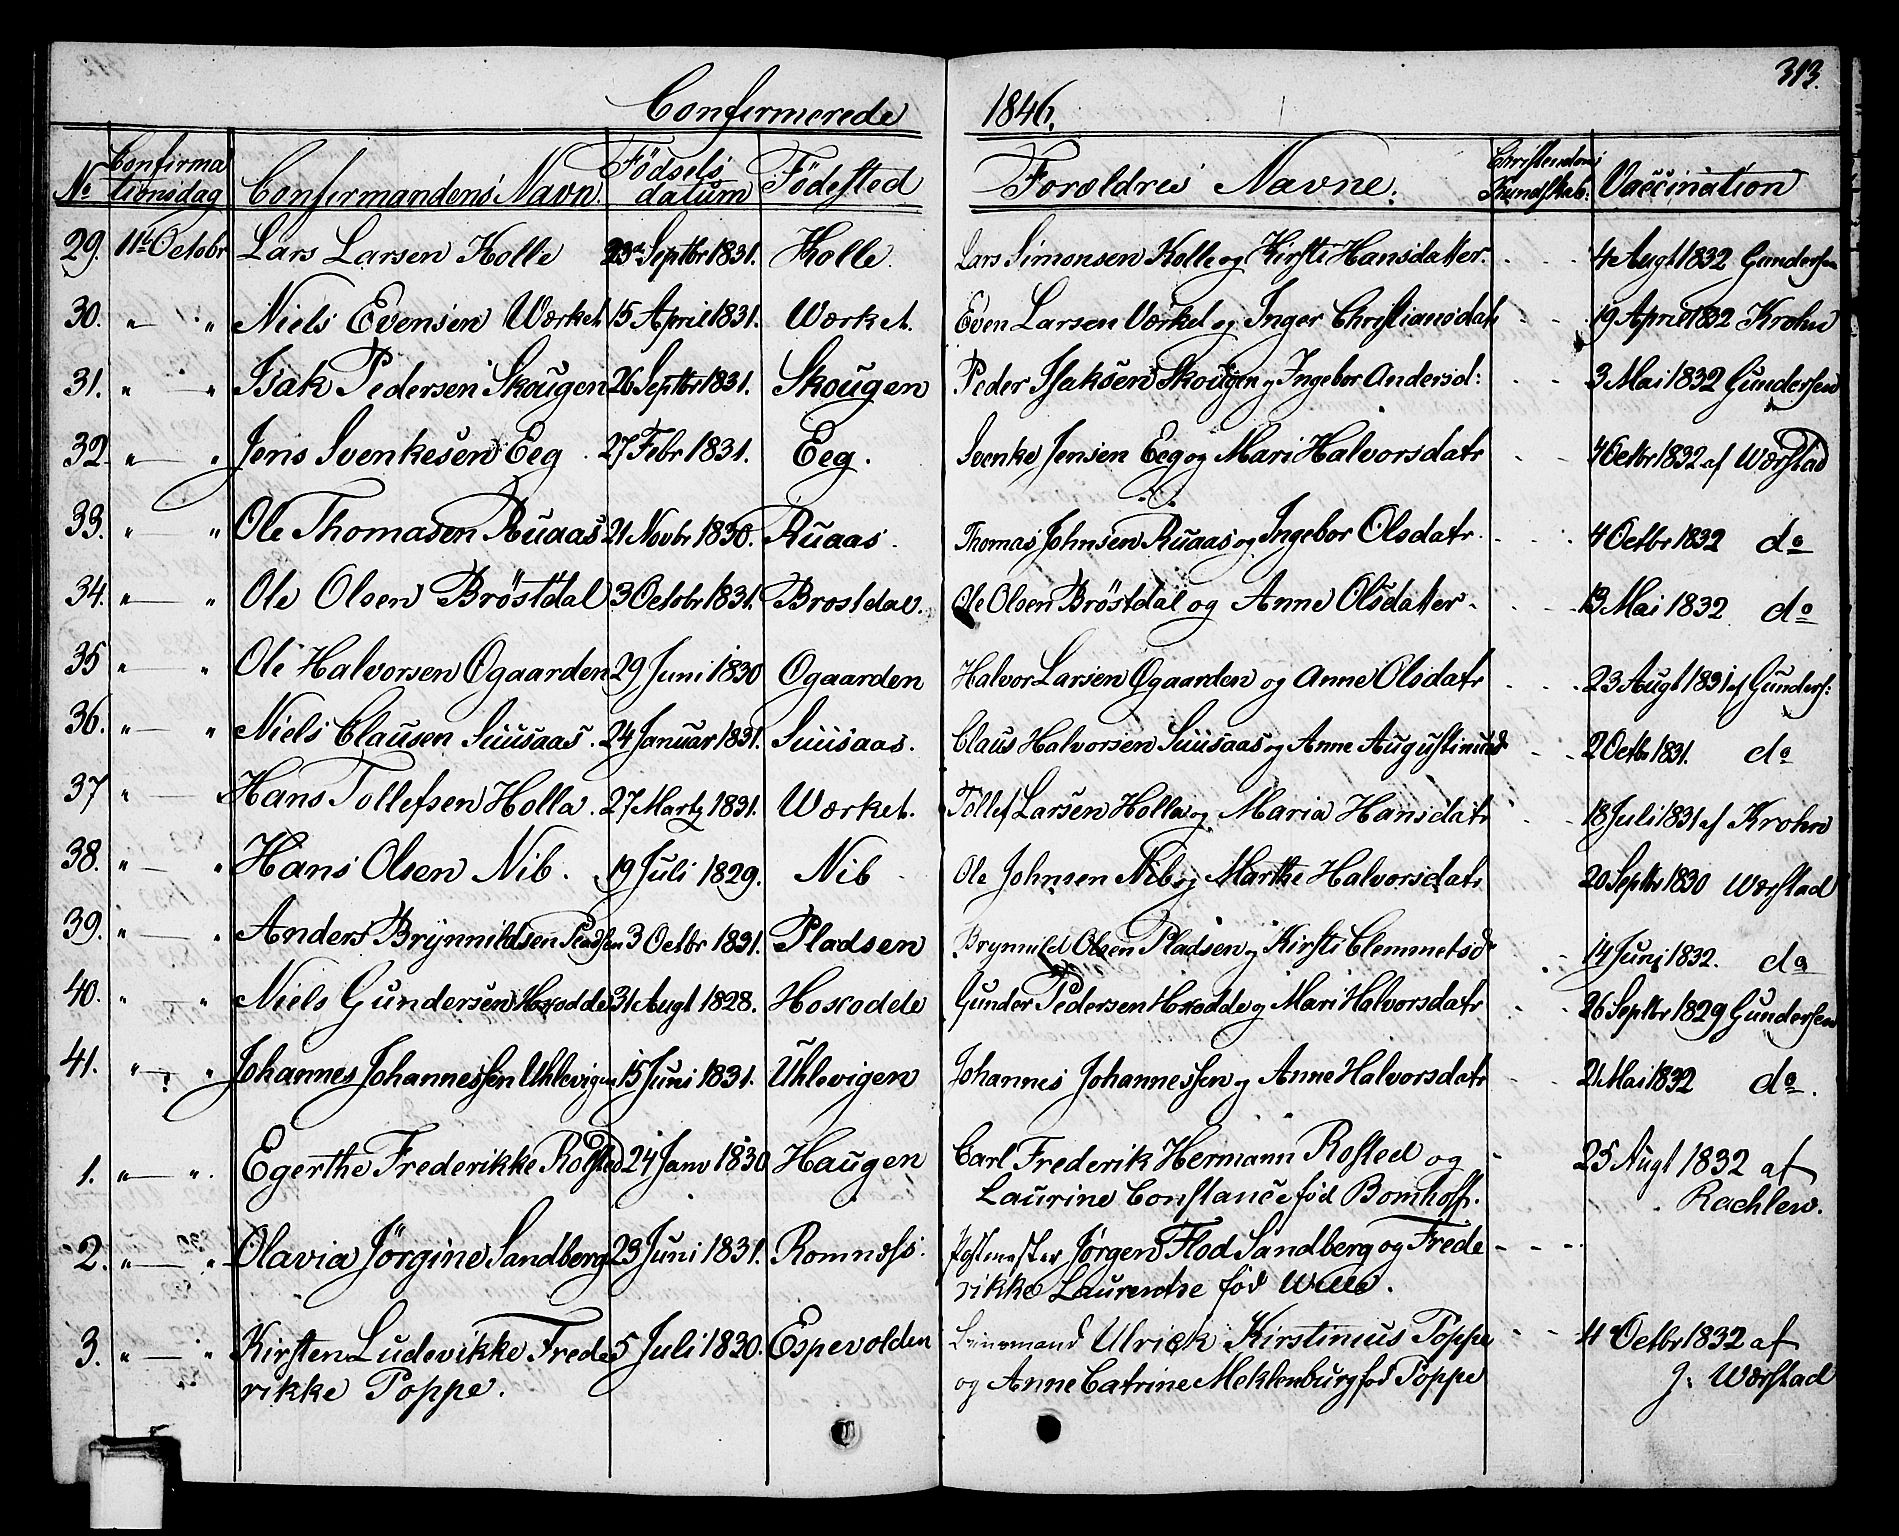 313.
Confirmerede 1846.
No Confirmationsdag Confirmandens Navn. Födsels datum Födested Forældres Navne. Christendoms Kundskab: Vaccination
29. 11te Octobr Lars Larsen Holle 23de Septbr 1831. Holle. Lars Simonsen Holle og Kirsti Hansdatter. 4 Augt 1832 Gundersen
30. " — " Niels Evensen Værket 15 April 1831. Værket. Even Larsen Værket og Inger Christiansdatr 19 April 1832 Krohn
31. " " Isak Pedersen Skougen 26 Septbr 1831. Skougen Peder Isaksen Skougen og Ingebor Andersd: 3 Mai 1832 Gundersen
32 " — " Jens Svenkesen Eeg 27 Febr 1831. Eeg. Svenke Jensen Eeg og Mari Halvorsdatr 4 Octbr 1832 af Wærstad
33. " " Ole Thomasen Ruaas 21 Novbr 1830. Ruaas. Thomas Johnsen Ruaas og Ingebor Olsdatr. 4 Octbr 1832 do
34. " — " Ole Olsen Bröstdal 3 Octobr 1831. Brostdal. Ole Olsen Bröstdal og Anne Olsdatter. 13 Mai 1832 do
35 " — " Ole Halvorsen Ogaarden 29 Juni 1830 Ogaarden Halvor Larsen Ogaarden og Anne Olsdatr 23 Augt 1831 af Gunders:
36. " — " Niels Clausen Suusaas. 24 Januar 1831. Suusaas. Claus Halvorsen Suusaas og Anne Augustinusd 2 Octbr 1831. do
37 " — Hans Tollefsen Holla. 27 Martz 1831. Værket. Tollef Larsen Holla og Maria Hansdatr 18 Juli 1831 af Krohn
38. " — " Hans Olsen Nib. 19 Juli 1829. Nib Ole Johnsen Nib og Marthe Halvorsdatr 20 Septbr 1830 Wærstad
39. " — " Anders Brynnildsen Pladsen 3 Octbr 1831. Pladsen Brynnild Olsen Pladsen og Kirsti Clemmetsd 14 Juni 1832. do
40. " — " Niels Gundersen Hoxodde 31 Augt 1828. Hoxodde Gunder Pedersen Hoxodde og Mari Halvorsdatr 26 Septbr 1829 Gundersen
41. " — " Johannes Johannessen Uhlevigen 15 Juni 1831. Uhlevigen Johannes Johannessen og Anne Halvorsdatr 21 Mai 1832 do.
1. " — ". Egerthe Frederikke Rosted 24 Janv 1830 Haugen Carl Frederik Hermann Rosted og 25 Augt 1832 af
Laurine Constance föd Bomhoff. Rachlew.
2. " — " Olavia Jörgine Sandberg 23 Juni 1831. Romnæss. Postmester Jørgen Flod Sandberg og Frede
rikke Laurentse föd Wille.
3. " — " Kirsten Ludevikke Frede 5 Juli 1830. Espevolden Ulrick Kirstinus Poppe 4 Octbr 1832 af
rikke Poppe. og Anne Catrine Meklenburg fød Poppe J. Wærstad